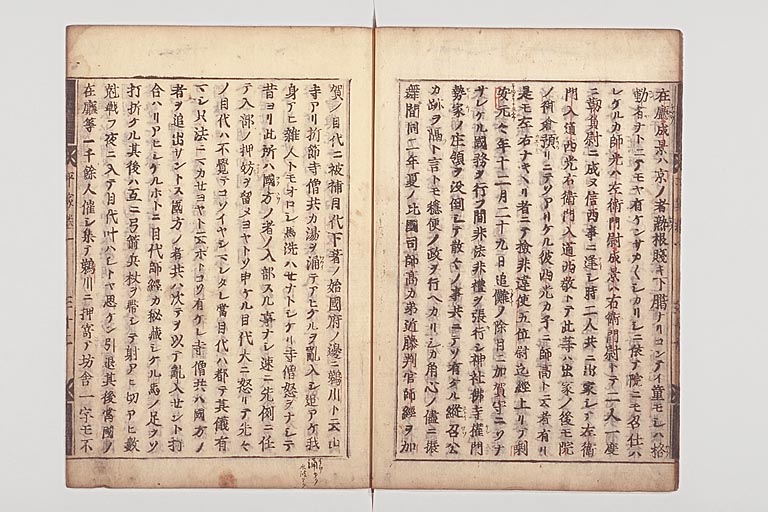 在廳成景ハ京ノ者熟根賤キ下臈ナリコンテイ童モシハ格
動者ナトニテモヤ有ケンサカ〱シカリシニ依テ院ニモ召仕ハ
レケルカ師光ハ左衛門尉成景ハ右衛門尉トテ二人一度
ニ靭負尉ニ成ヌ信西事ニ逢シ時二人共ニ出家シテ左衛
門入道西光右衛門入道西敬トテ此等ハ出家ノ後モ院
ノ御倉預リニテソアリケル彼西光カ子ニ師高ト云者有リ
是モ左右ナキヘリ者ニテ檢非違使五位尉迄經上リテ剩
安元々年十二月二十九日追儺ノ除目ニ加賀守ニソナ
サレケル國務ヲ行フ間非法非禮ヲ張行シ神社佛寺權門
勢家ノ庄領ヲ没倒シテ散々ノ事共ニテソ有ケル縱召公
カ跡ヲ隔ト言トモ穩便ノ政ヲ行ヘカリシカ角心ノ儘ニ振
舞間同二年夏ノ比國司師高カ弟近藤判官師經ヲ加
賀ノ目代ニ被補目代下著ノ始國府ノ邊ニ鵜川ト云山
寺アリ折節寺僧共カ湯ヲ涌テアヒケルヲ亂入シ追アケ我
身アヒ雜人トモオロシ馬洗ハセナトシケリ寺僧怒ヲナシテ
昔ヨリ此所ハ國方ノ者ノ入部スル事ナシ速ニ先例ニ任
テ入部ノ押妨ヲ留メヨヤトソ申ケル目代大ニ怒リテ先々
ノ目代ハ不覺テコソイヤシマレタレ當目代ハ都テ其儀有
マシ只法ニマカセヨヤト云ホトコソ有ケレ寺僧共ハ國方ノ
者ヲ追出サントス國方ノ者共ハ次テヲ以テ亂入セント打
合ハリアヒシケルホトニ目代師經カ秘藏シケル馬ノ足ヲソ
打折ケル其後ハ互ニ弓箭兵杖ヲ帶シテ射アヒ切アヒ數
剋戰フ夜ニ入テ目代叶ハシトヤ思ケン引退其後當國ノ
在廳等一千餘人催シ集テ鵜川ニ押寄テ坊舎一宇モ不